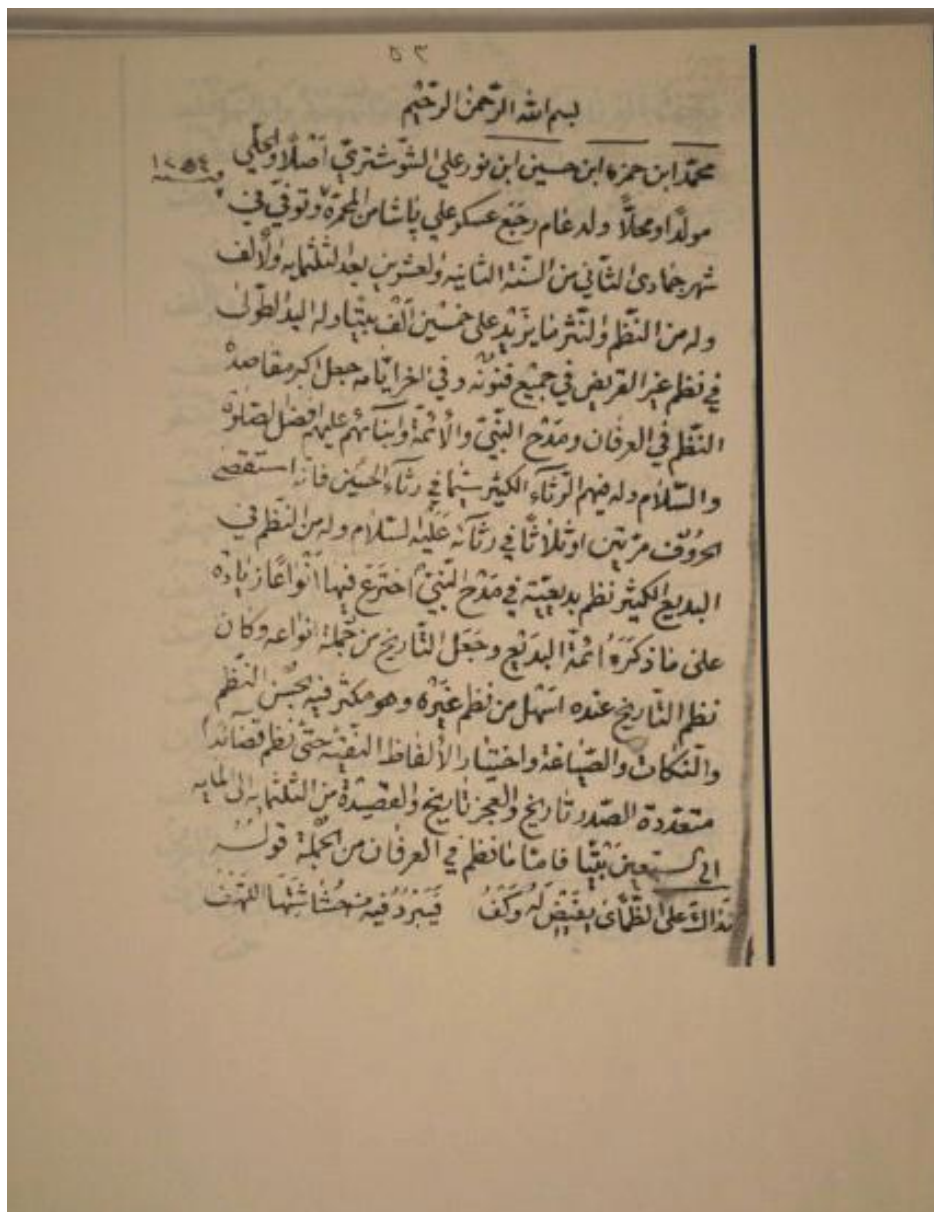 ٥٣
بسم الله الرّحمن الرّحيم
محمّد ابن حمزه ابن حسين ابن نور علي الشّوشتريّ أصْلًا والحلّي
سنة ١٢٥٤
مولدًا ومحلاًّ ولد عام رجَع عسكر علي پاشا من المحمّرة وتوفّي في
شهر جمادى الثّاني من السّنة الثانيه والعشرين بعد الثلثمايه والألف
وله من النّظم والنّثر ما يزيد على خمسين ألْف بيتًا وله اليد الطّولى
في نظم غير القريض في جميع فنونه وفي اخر ايّامه جعل اكبر مقاصده
النّظم في العرفان ومدْح النّبيّ والأئمّة وابنائهم عليهم افضل الصّلوة
والسّلام وله فيهم الرّثآء الكثير سيّما في رثآء الحسين فانّه استقصى
الحرُوف مرّتين او ثلاثًا في رثآئه عَليْه السّلام وله من النّظم في
البديع الكثير نظم بديعيّة في مَدْح النّبيّ اخترع فيها أنْواعًا زياده
على ما ذكرَهُ ائمّة البديع وجَعَل التّاريخ من جملة انواعه وكان
نظم التاريخ عنده اسْهل من نظم غيْره وهو مكثر فيه بحُسْن النّظم
والنّكات والصّياغة واختيار الألفاظ النّقيّة حتّى نظم قصآئدًا
متعدّدة الصّدر تاريخ والعجز تاريخ والقصيدة من الثلثمايه الى المايه
الى السبعين بيْتًا فامّا ما نظم في العرفان من الجملة قولُهُ
نداك على الظّمأى بفَيْضٍ لَهُ وَكَفُ فيَبْرُدُ فيه من حُشاشَتِها اللّهْفُ